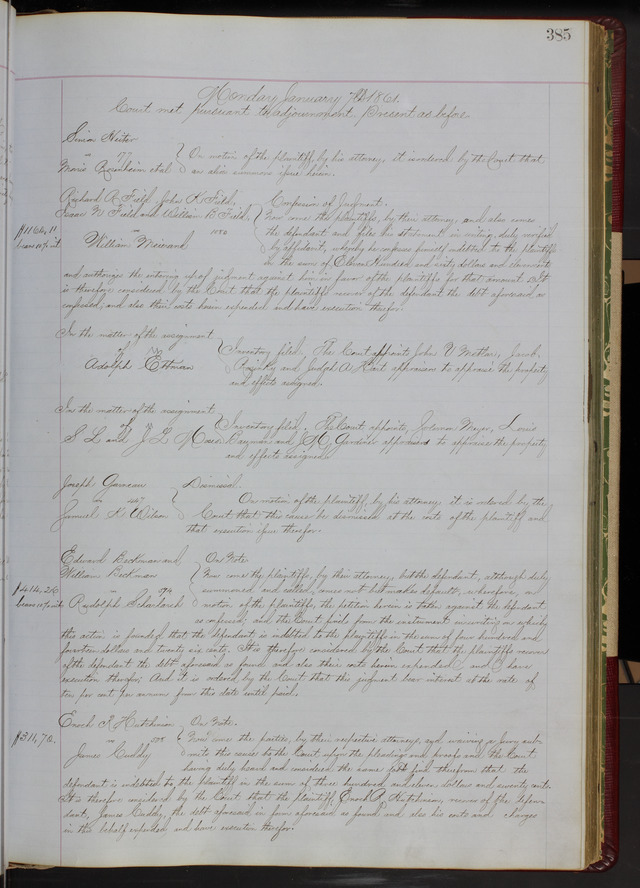 385
Monday January 7th 1861.
Court met pursuant to adjournment. Present as before.
Simon Heiter
vs 77
On motion of the plaintiff, by his attorney, it is ordered by the Court that
an alias summons issue herein.
Richard A. Field, John K. Field,
Isaac N. Field and William H. Field,
vs
William
Confession of Judgment.
Now come the plaintiffs, by their attorney, and also comes
the defendant and files his statement in writing, duly verified
by affidavit, whereby he confesses himself indebted to the plaintiffs
in the sum of Eleven Hundred and sixty dollars and
and authorizes the entering up of judgment against him in favor of the plaintiffs for that amount. It
is therefore considered by the Court that the plaintiffs recover of the defendant the debt aforesaid so
confessed, and also their costs herein expended and have execution therefor.
$1160,11
In the matter of the assignment
of
Adolph Ettman
Inventory filed. The Court appoints John V.
and Joseph A. appraisers to appraise the property
and effects assigned.
In the matter of the assignment
of
S L and J L
Inventory filed. The Court appoints Solomon Meyer, Louis
and J H Gardner appraisers to appraise the property
and effects assigned.
Joseph Garneau
vs 447
Samuel K Wilson
Dismissed.
On motion of the plaintiff by his attorney it is ordered by the
Court that this cause be dismissed at the costs of the plaintiff and
that execution issue therefor.
Edward Beckman and
William Beckman
vs 394
Rudolph
On Note.
Now come the plaintiffs, by their attorney, but the defendant, although duly
summoned and called, comes not but makes default; wherefore, on
motion of the plaintiffs, the petition herein is taken against the defendant
as confessed; and the Court finds from the instrument in writing on which
this action is founded that the defendant is indebted to the plaintiffs in the sum of four hundred and
fourteen dollars and twenty six cents. It is therefore considered by the Court that the plaintiffs recover
of the defendant the debt aforesaid so found and also their costs herein expended and have
execution therefor; And it is ordered by the Court that the judgment bear interest at the rate of
ten per cent per annum from this date until paid.
$414,26
bears 10 pr ct int
Enoch P. Hutchinson
vs
James Cuddy
On Note.
Now come the parties, by their respective attorneys, and waiving a jury sub-
mits this cause to the Court upon the pleadings and proofs and the Court
having duly heard and considered the same doth find therefrom that the
defendant is indebted to the plaintiff in the sum of three hundred and eleven dollars and seventy cents.
It is therefore considered by the Court that the plaintiff, Enoch P. Hutchinson, recover of the defen-
dant, James Cuddy, the debt aforesaid in form aforesaid so found and also his costs and charges
in this behalf expended and have execution therefor.
$311,70.